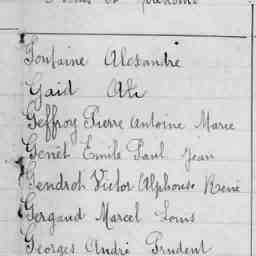 Fontaine Alexandre
Gaid Ali
Geffroy Pierre Antoine Marie
Genêt Emile Paul Jean
Gendrot Victor Alphonse René
Gergaud Marcel Louis
Georges André Prudent